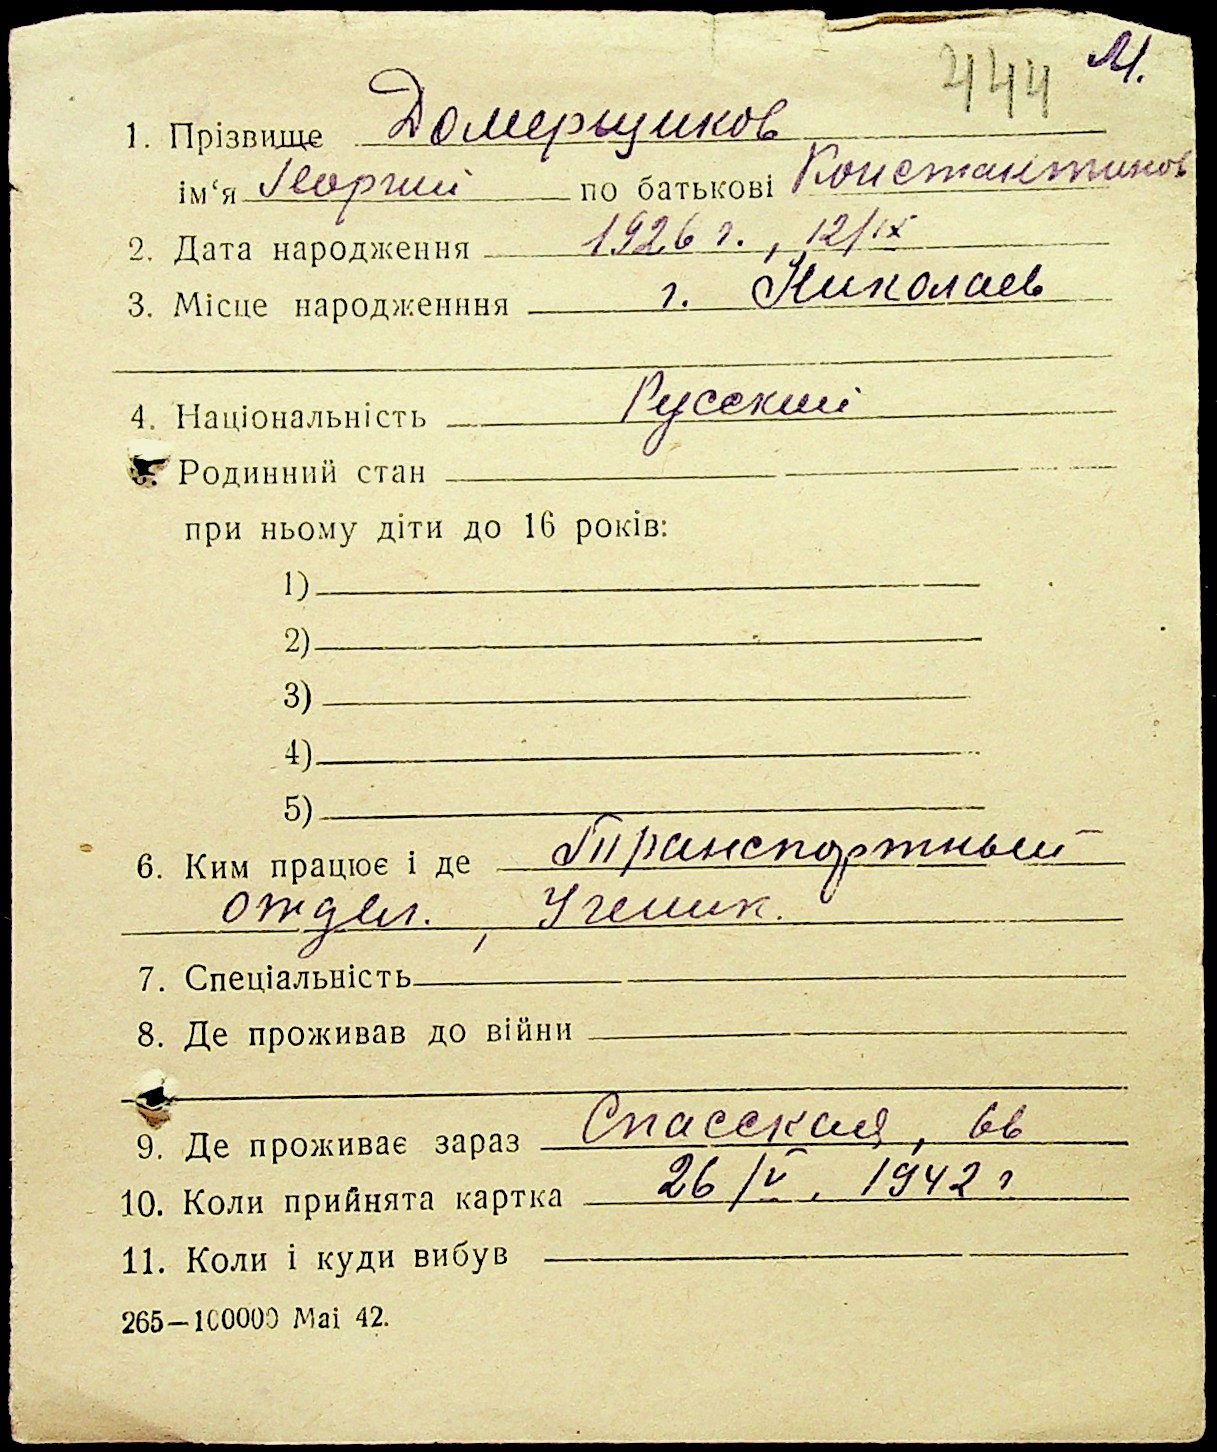 444 М.
1. Прізвище Домерщиков
ім‘я Георгий по батькові Константинов
2. Дата народження 1926 г., 12/IX
3. Місце народженння г. Николаев
4. Національність Русский
5. Родинний стан
при ньому діти до 16 років:
1)
2)
3)
4)
5)
6. Ким працює і де Транспортный
отдел., Ученик.
7. Спеціальність
8. Де проживав до війни
9. Де проживає зараз Спасская, 66
10. Коли прийнята картка 26/V. 1942 г
11. Коли і куди вибув
265—100000 Mai 42.